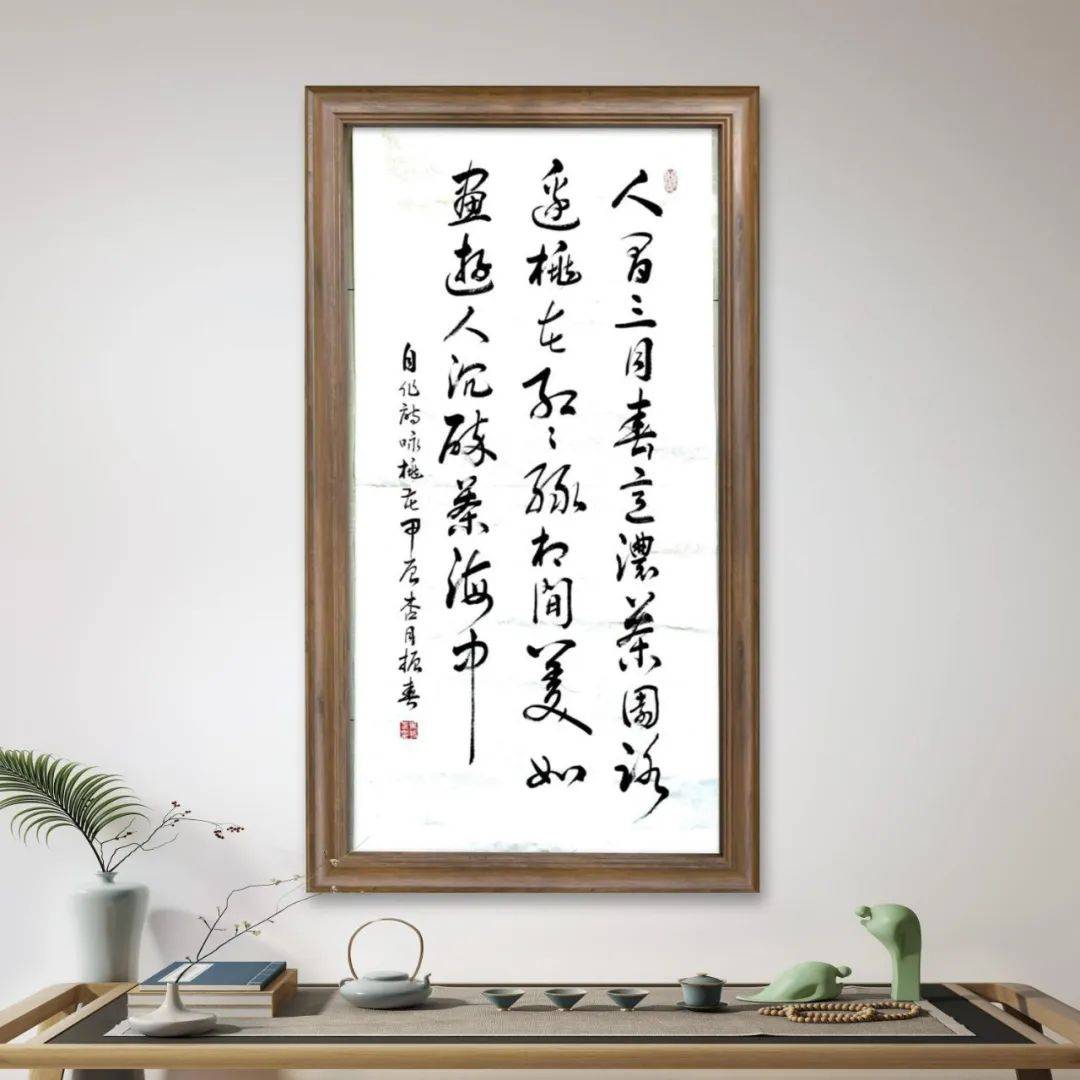 人間三月春意濃茶園路
邊桃花紅〻綠相間美如
畫遊人沉醉茶海中
自作詩咏桃花甲辰杏月振春